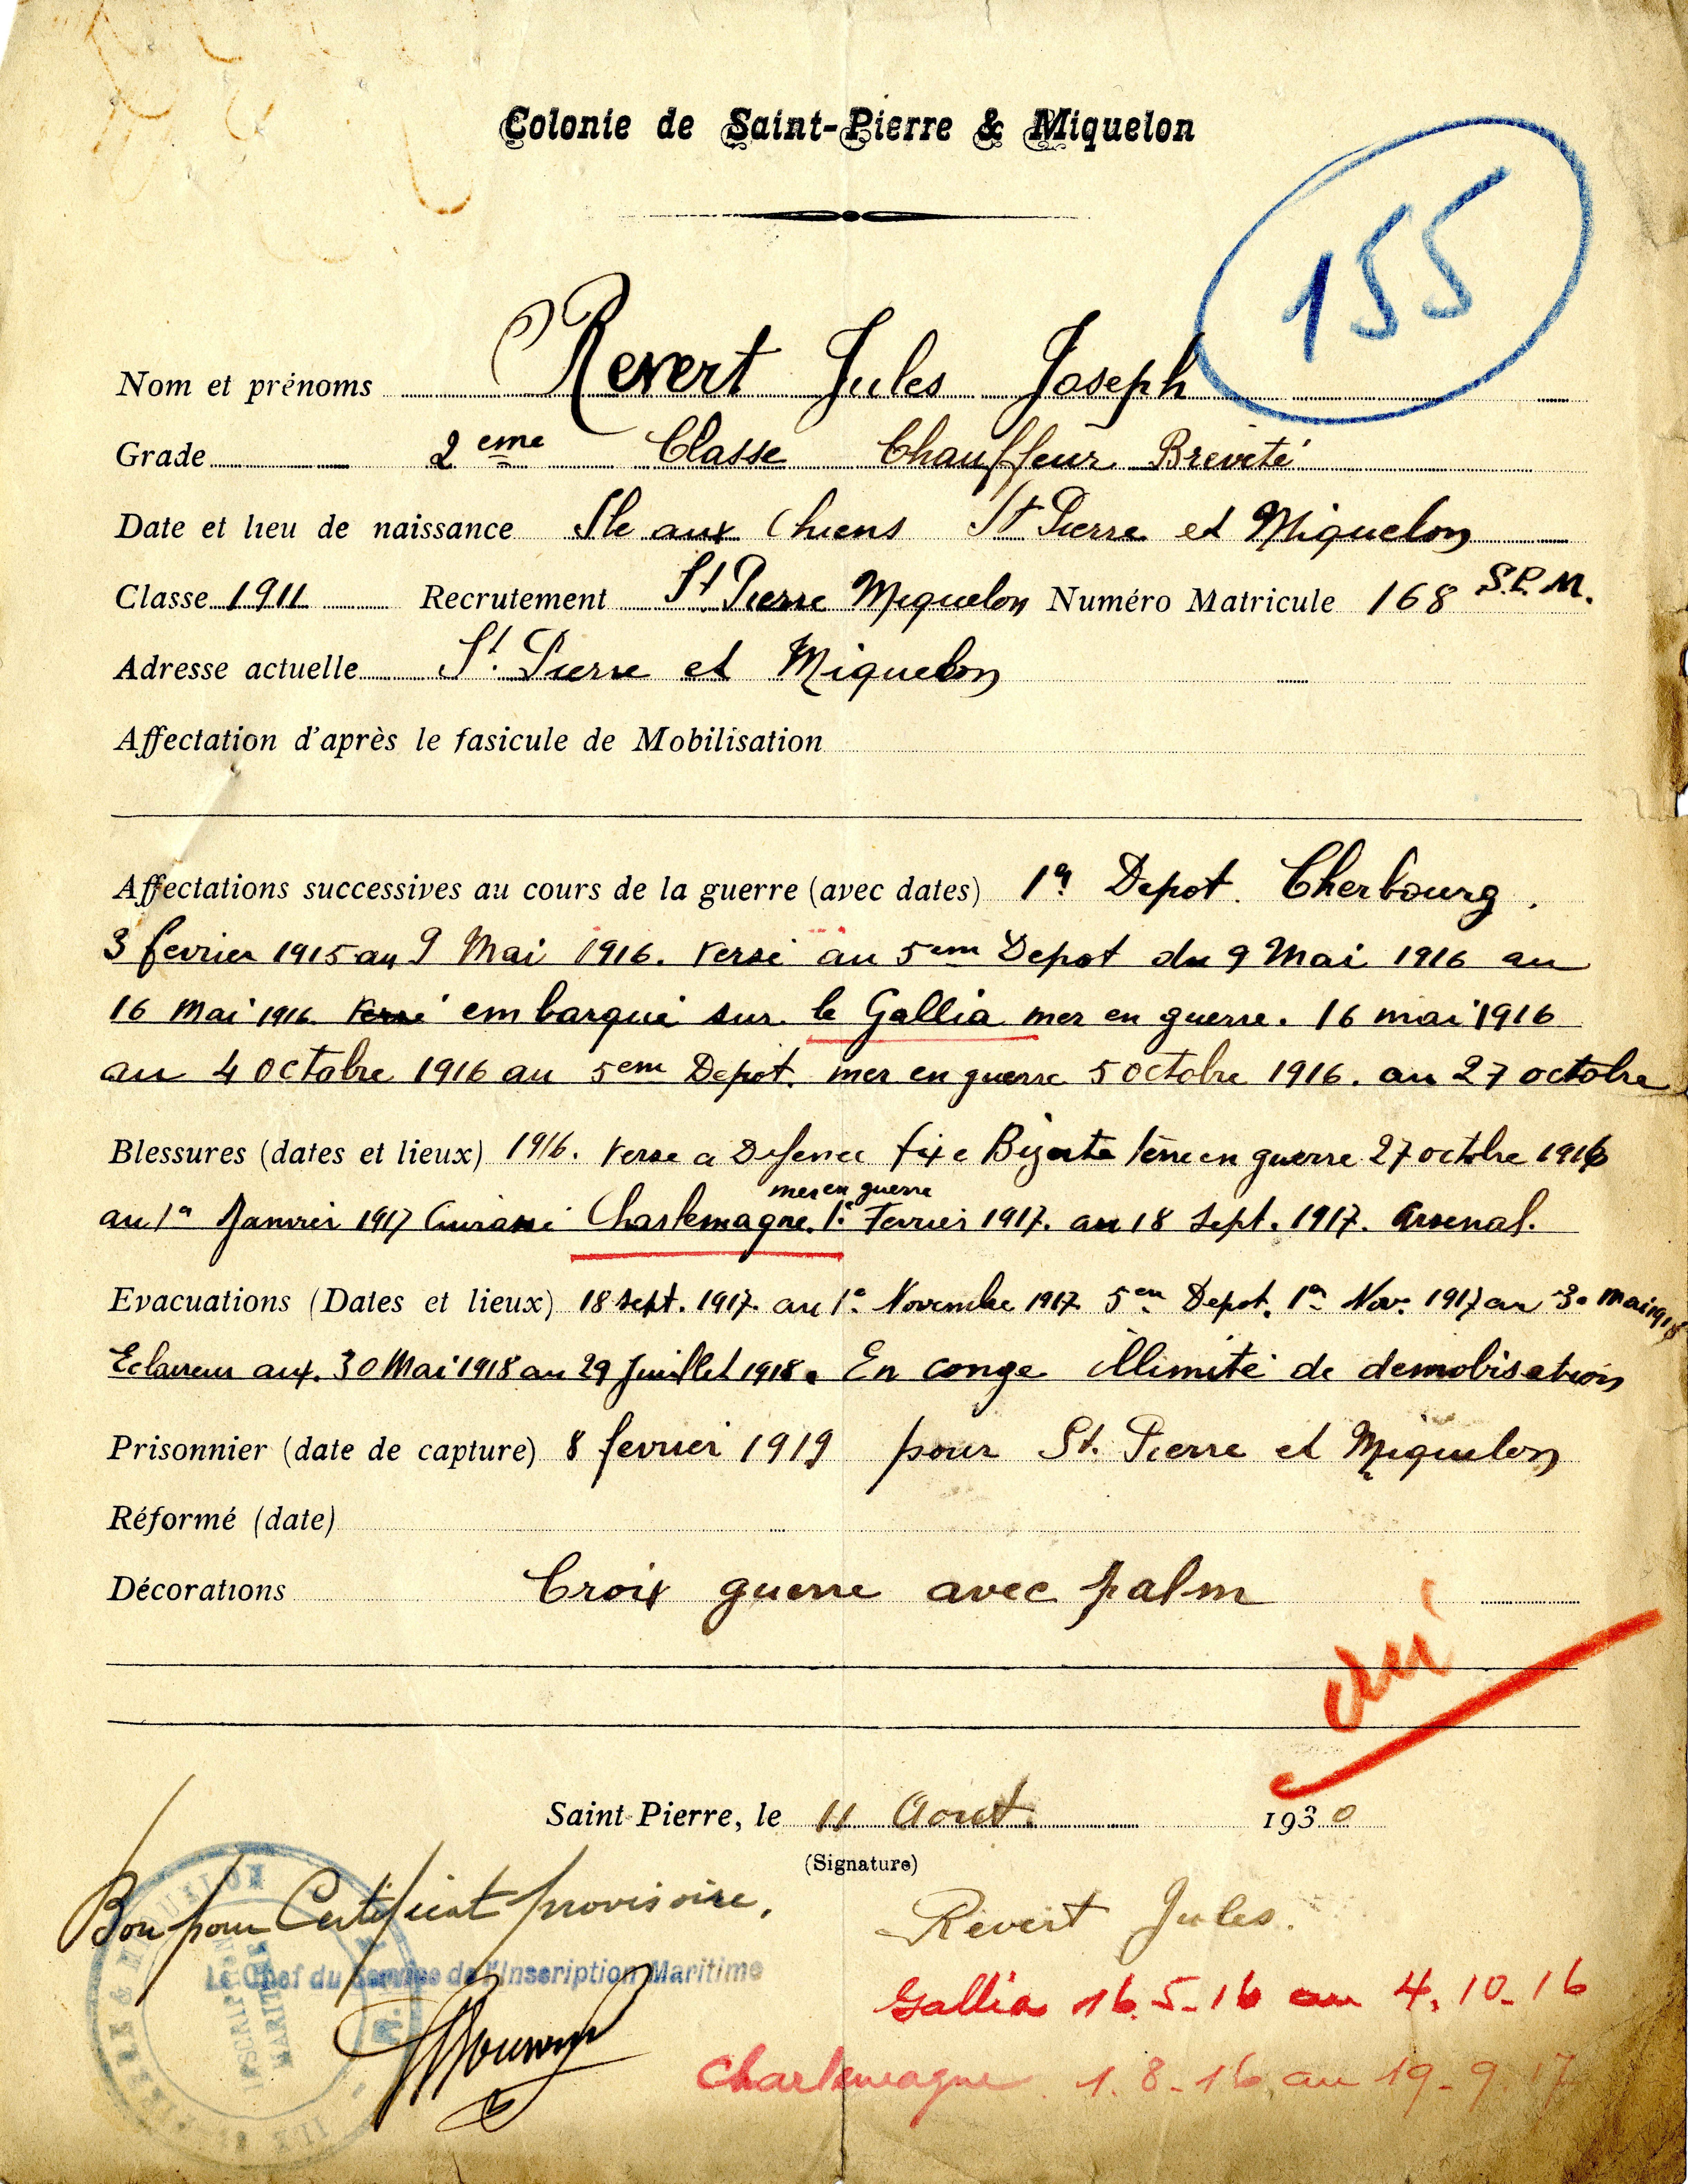 Colonie de Saint-Pierre & Miquelon
155
Nom et prénoms Revert Jules Joseph
Grade 2eme Classe Chauffeur Breveté
Date et lieu de naissance Ile aux Chiens St Pierre et Miquelon
Classe 1911 Recrutement St Pierre Miquelon Numéro Matricule 168 S.P.M.
Adresse actuelle St. Pierre et Miquelon
Affectation d'après le fasicule de Mobilisation
Affectations successives au cours de la guerre (avec dates) 1er Depot. Cherbourg.
3 fevrier 1915 au 9 Mai 1916. Versé au 5em Depot du 9 Mai 1916 au
16 Mai 1916 Versé embarqué sur le Gallia mer en guerre. 16 mai 1916
au 4 octobre 1916 au 5em Depot. mer en guerre 5 octobre 1916. au 27 octobre
Blessures (dates et lieux) 1916. Verse a Defence fixe Bizerte terre en guerre 27 octobre 1916
mer en guerre
au 1er Janvier 1917 Cuirassé Charlemagne. 1er Fevrier 1917. au 18 Sept. 1917. Arsenal.
Evacuations (Dates et lieux) 18 Sept. 1917. au 1er Novembre 1917 5em Depot. 1er Nov. 1917 au 30 Mai 1918
Eclaireur aux. 30 Mai 1918 au 29 Juillet 1918. En conge illimité de demobisation
Prisonnier (date de capture) 8 fevrier 1919 pour St. Pierre et Miquelon
Réformé (date)
Décorations Croix guerre avec palm
oui
Saint-Pierre, le 11 Aout. 1930
(Signature)
Bon pour Certificat provisoire.
Revert Jules.
Le Chef du Service de l'Inscription Maritime
INSCRIPTION
MARITIME
Gallia 16.5-16 au 4.10-16
Charlemagne 1.8-16 au 19-9.17